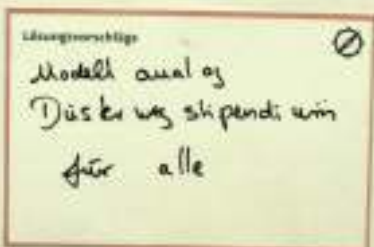 Lösungsvorschläge
Modell analog
Düsterwegstipendium
für alle